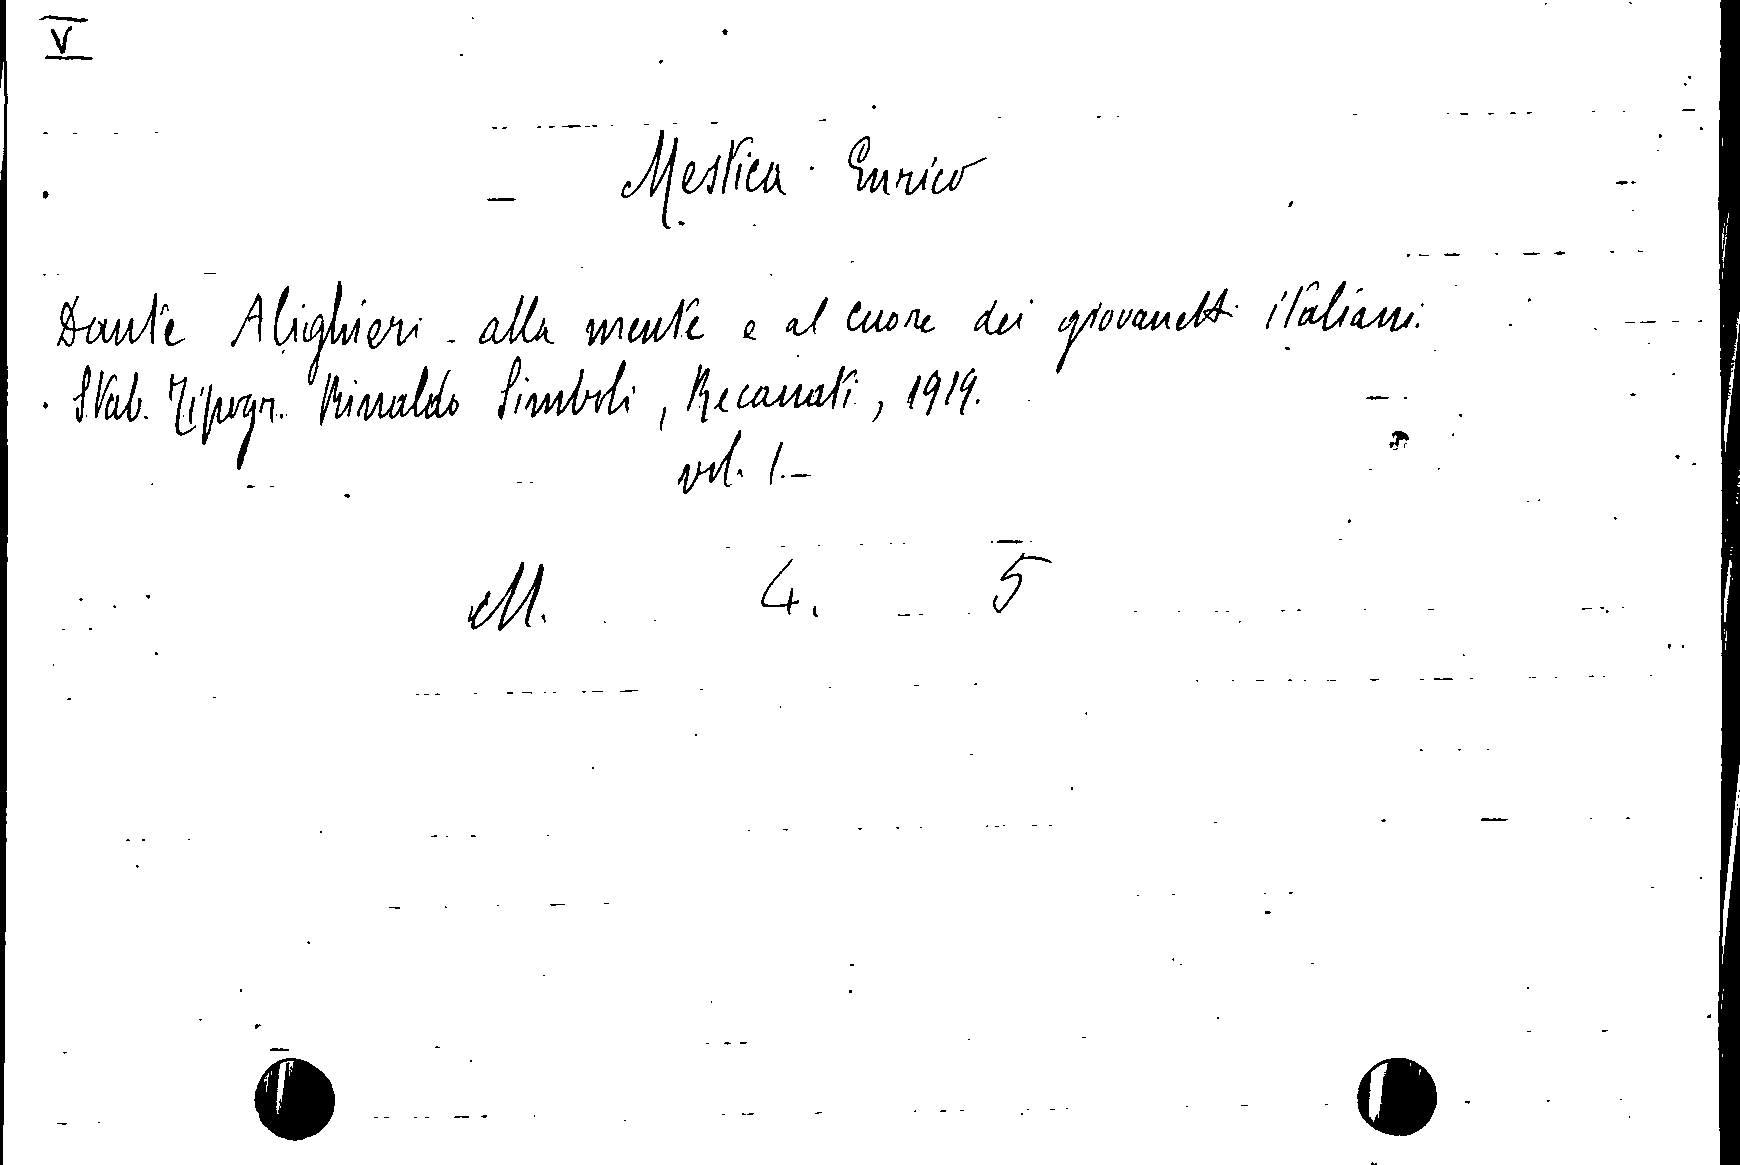 V
Mestica Enrico
Dante Alighieri - alla mente e al cuore dei giovanetti italiani.
Stab. Tipogr. Rinaldo Simboli, Recanati, 1919.
vol. 1.-
M. 4. 5